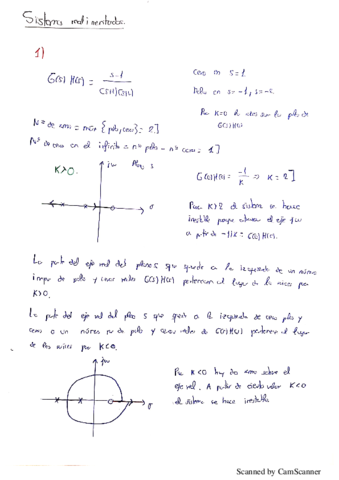 Sistemas realimentados.
1)
G(s) H(s) = s-1 / (s+1)(s+2)
Cero en s=1.
Polos en s=-1, s=-2.
Para K=0 el
G(s)H(s)
Nº de ramas = max {polos, ceros} = 2]
Nº de ramas en el infinito = nº polos - nº ceros = 1]
K>0.
jω
Plano s
σ
G(s)H(s) = -1/K => K=2]
Para K>2 el sistema se hace
inestable porque el eje jω
a partir de -1/K = G(s)H(s).
La parte del eje real del plano s que quede a la izquierda de un número
impar de polos y ceros reales G(s)H(s) pertenecen al lugar de las raíces para
K>0.
La parte del eje real del plano s que quede a la izquierda de polos y
ceros o un número par de polos y ceros reales de G(s)H(s) pertenecen al lugar
de las raíces para K<0.
jω
σ
Para K<0 hay dos ramas sobre el
eje real. A partir de cierto valor K<0
el sistema se hace inestable
Scanned by CamScanner